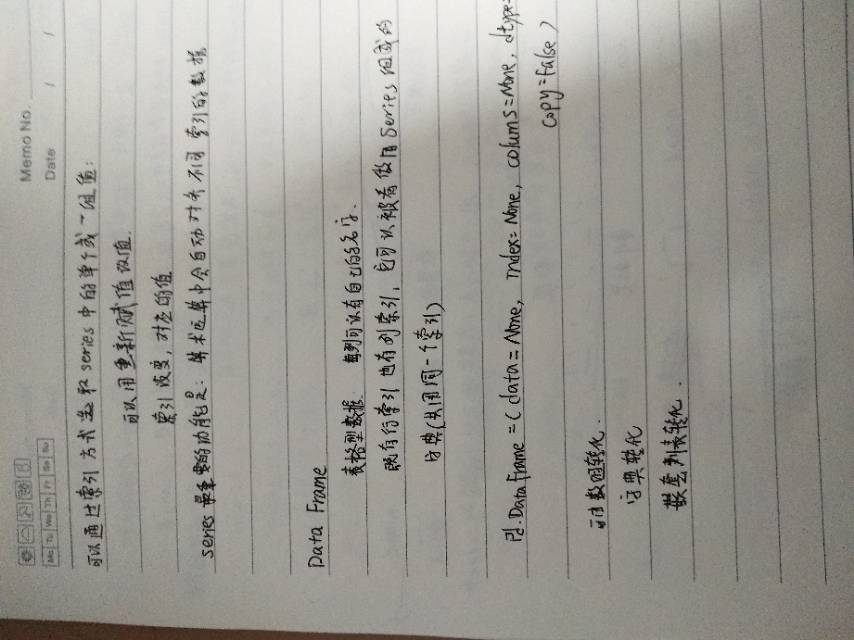 Memo No.
Date / /
Mo Tu We Th Fr Sa Su
可以通过索引方式选取series中的单个或一组值:
可以用重新赋值改值.
索引改变,对应的值
series最重要的功能是:算术运算中会自动对齐不同索引的数据
Data Frame
表格型数据. 每列可以有自己的名字.
既有行索引也有列索引,它可以被看做由Series组成的
字典(共用同一个索引)
Pd.DataFrame=(data=None, index=None, colums=None, dtype=
copy=False)
可由数组转化.
字典转化
嵌套列表转化.